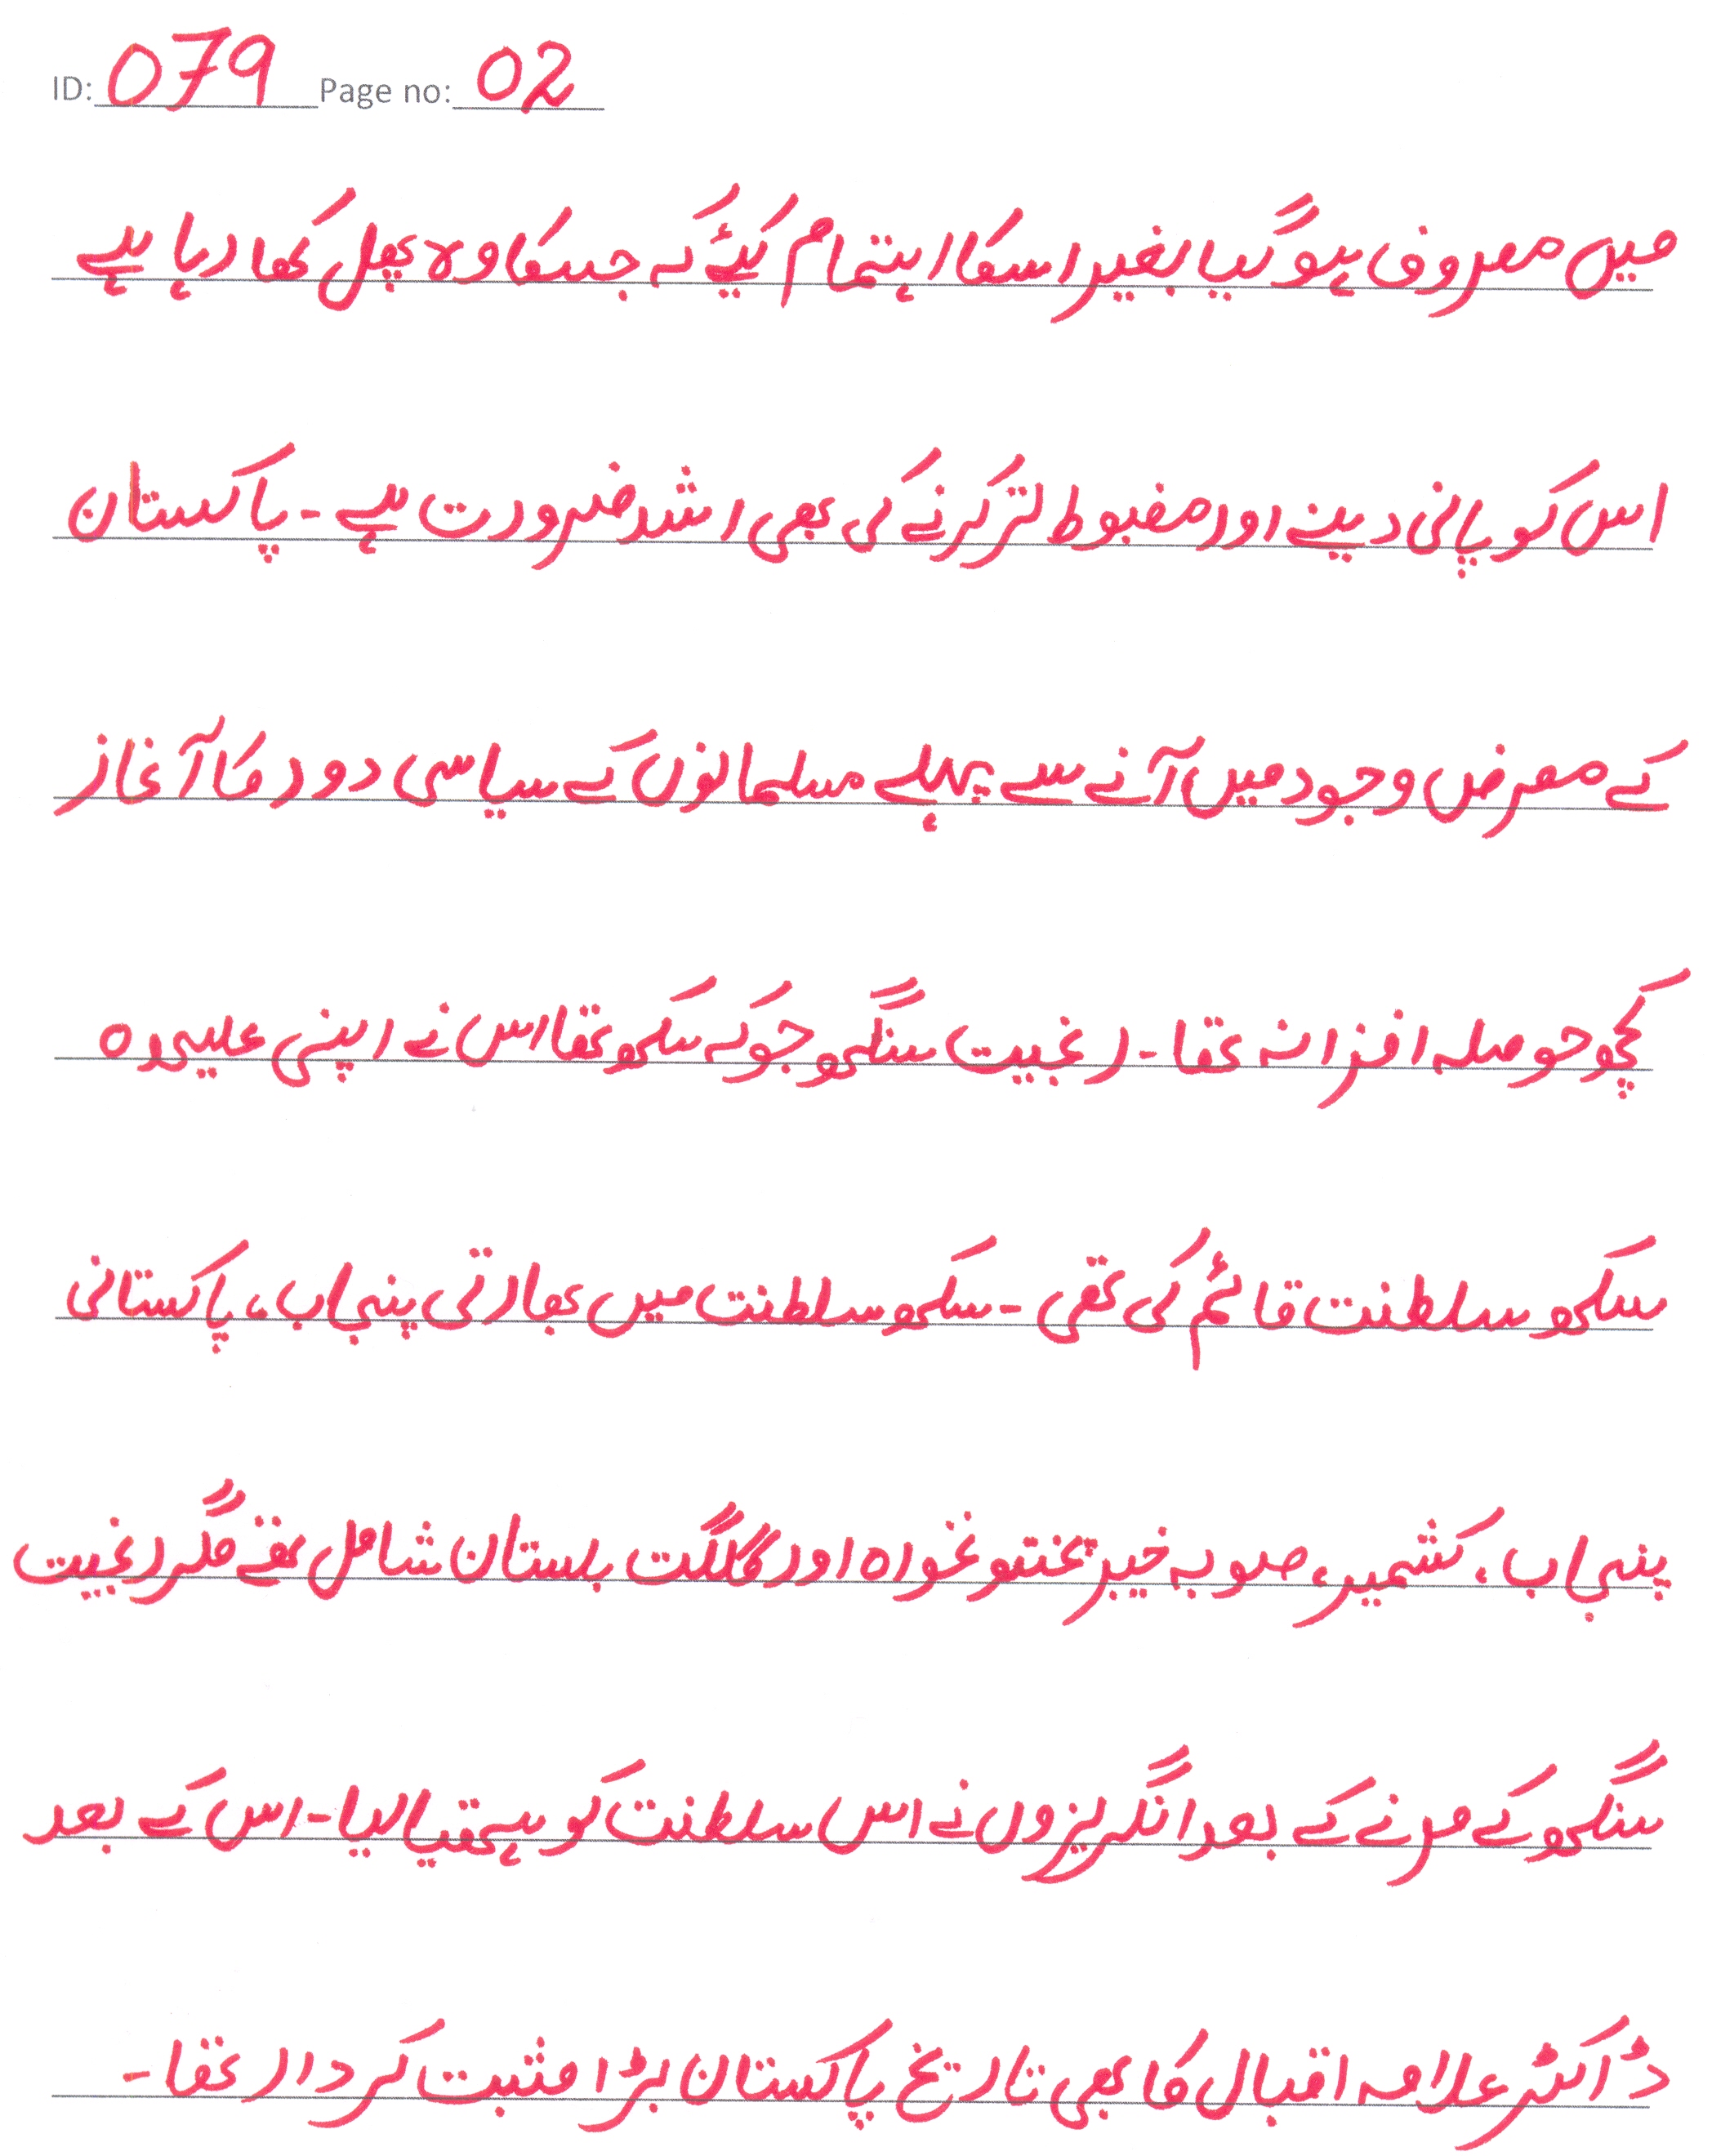 ID: 079 Page no: 02
میں مصروف ہوگیا بغیر اسکا اہتمام کیئے کہ جسکا وہ پھل کھا رہا ہے
اس کو پانی دینے اور مضبوط تر کرنے کی بھی اشد ضرورت ہے - پاکستان
کے معرض وجود میں آنے سے پہلے مسلمانوں کے سیاسی دور کا آغاز
کچھ حوصلہ افزا نہ تھا - رغبیت سنگھ جو کہ سکھ تھا اس نے اپنی علیحدہ
سکھ سلطنت قائم کی تھی - سکھ سلطنت میں بھارتی پنجاب، پاکستانی
پنجاب، کشمیر، صوبہ خیبر پختونخواہ اور گلگت بلستان شامل تھے مگر رغبیت
سنگھ کے مرنے کے بعد انگریزوں نے اس سلطنت کو ہتھیا لیا - اس کے بعد
ڈاکٹر علامہ اقبال کا بھی تاریخ پاکستان بڑا مثبت کردار تھا -